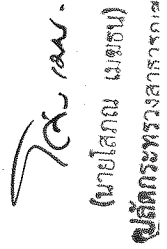 (นายโสภณ เมฆธน)
ปลัดกระทรวงสาธารณสุข